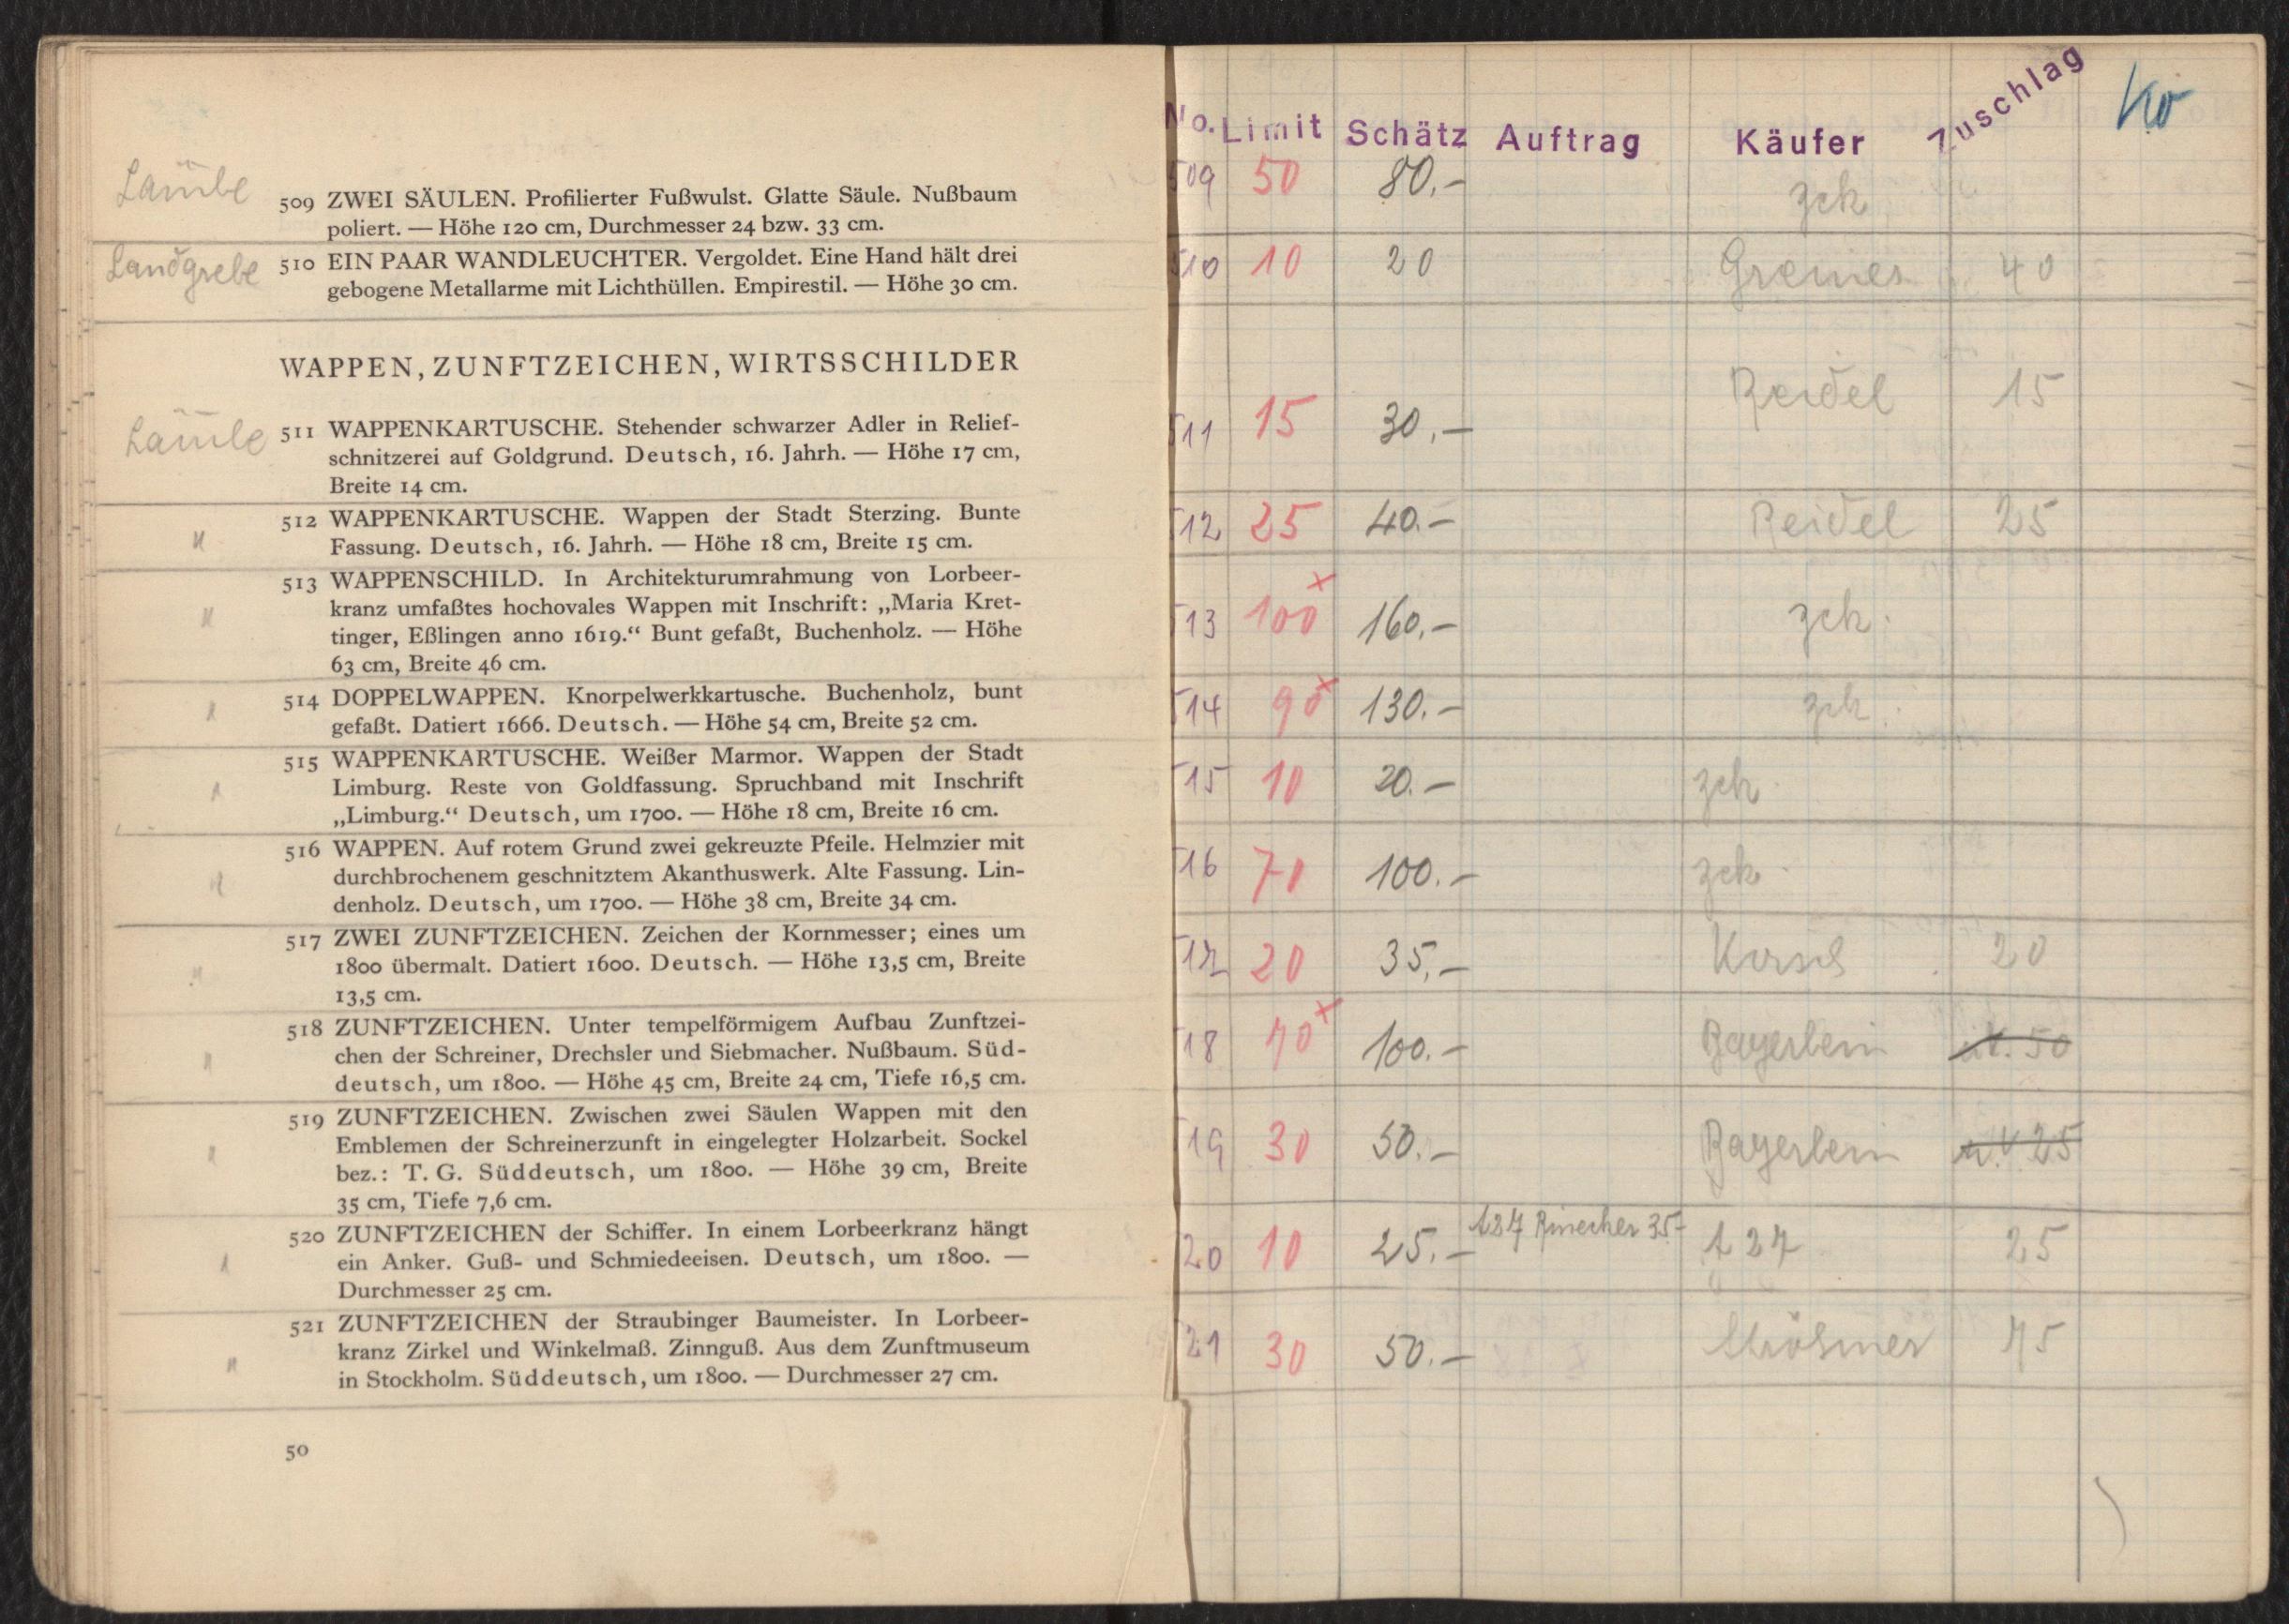 Läuble
509 ZWEI SÄULEN. Profilierter Fußwulst. Glatte Säule. Nußbaum
poliert. — Höhe 120 cm, Durchmesser 24 bzw. 33 cm.
Landgrebe
510 EIN PAAR WANDLEUCHTER. Vergoldet. Eine Hand hält drei
gebogene Metallarme mit Lichthüllen. Empirestil. — Höhe 30 cm.
WAPPEN, ZUNFTZEICHEN, WIRTSSCHILDER
Läuble
511 WAPPENKARTUSCHE. Stehender schwarzer Adler in Relief-
schnitzerei auf Goldgrund. Deutsch, 16. Jahrh. — Höhe 17 cm,
Breite 14 cm.
" 512 WAPPENKARTUSCHE. Wappen der Stadt Sterzing. Bunte
Fassung. Deutsch, 16. Jahrh. — Höhe 18 cm, Breite 15 cm.
" 513 WAPPENSCHILD. In Architekturumrahmung von Lorbeer-
kranz umfaßtes hochovales Wappen mit Inschrift: „Maria Kret-
tinger, Eßlingen anno 1619.“ Bunt gefaßt, Buchenholz. — Höhe
63 cm, Breite 46 cm.
" 514 DOPPELWAPPEN. Knorpelwerkkartusche. Buchenholz, bunt
gefaßt. Datiert 1666. Deutsch. — Höhe 54 cm, Breite 52 cm.
" 515 WAPPENKARTUSCHE. Weißer Marmor. Wappen der Stadt
Limburg. Reste von Goldfassung. Spruchband mit Inschrift
„Limburg.“ Deutsch, um 1700. — Höhe 18 cm, Breite 16 cm.
" 516 WAPPEN. Auf rotem Grund zwei gekreuzte Pfeile. Helmzier mit
durchbrochenem geschnitztem Akanthuswerk. Alte Fassung. Lin-
denholz. Deutsch, um 1700. — Höhe 38 cm, Breite 34 cm.
" 517 ZWEI ZUNFTZEICHEN. Zeichen der Kornmesser; eines um
1800 übermalt. Datiert 1600. Deutsch. — Höhe 13,5 cm, Breite
13,5 cm.
" 518 ZUNFTZEICHEN. Unter tempelförmigem Aufbau Zunftzei-
chen der Schreiner, Drechsler und Siebmacher. Nußbaum. Süd-
deutsch, um 1800. — Höhe 45 cm, Breite 24 cm, Tiefe 16,5 cm.
" 519 ZUNFTZEICHEN. Zwischen zwei Säulen Wappen mit den
Emblemen der Schreinerzunft in eingelegter Holzarbeit. Sockel
bez.: T. G. Süddeutsch, um 1800. — Höhe 39 cm, Breite
35 cm, Tiefe 7,6 cm.
" 520 ZUNFTZEICHEN der Schiffer. In einem Lorbeerkranz hängt
ein Anker. Guß- und Schmiedeeisen. Deutsch, um 1800. —
Durchmesser 25 cm.
" 521 ZUNFTZEICHEN der Straubinger Baumeister. In Lorbeer-
kranz Zirkel und Winkelmaß. Zinnguß. Aus dem Zunftmuseum
in Stockholm. Süddeutsch, um 1800. — Durchmesser 27 cm.
50
No. Limit Schätz Auftrag Käufer Zuschlag
509 50 80.- zck
510 10 20 Greiner 40
511 15 30.- Reidel 15
512 25 40.- Reidel 25
513 100 x 160.- zck.
514 90 x 130.- zck.
515 10 20.- zck.
516 70 100.- zck.
517 20 35.- 20
518 70 x 100.- Bayerlein 50
519 30 50.- Bayerlein 25
520 10 25.- 35.- 25
521 30 50.- 45